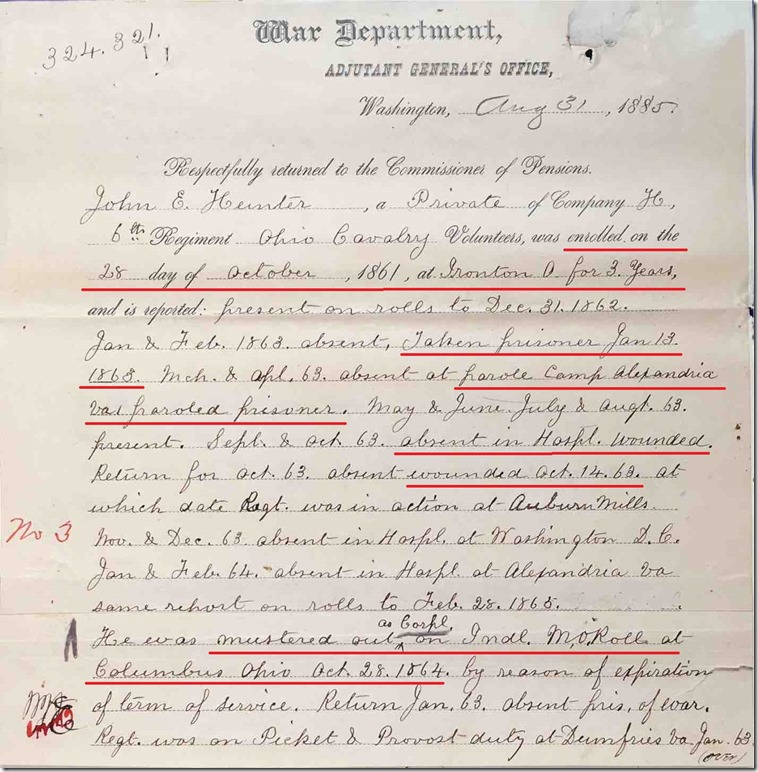 324.321.
War Department,
ADJUTANT GENERAL'S OFFICE,
Washington, Aug 31, 1885.
Respectfully returned to the Commissioner of Pensions.
John E. Heinter, a Private of Company H,
6th Regiment Ohio Cavalry Volunteers, was enrolled on the
28 day of October, 1861, at Ironton O for 3. Years,
and is reported: present on rolls to Dec. 31. 1862.
Jan & Feb. 1863. absent, Taken prisoner Jan 13.
1863. Mch. & Apl. 63. absent at parole Camp Alexandria
Va paroled prisoner. May & June July & Augt. 63.
present. Sept. & Oct 63. absent in Hospl. wounded.
Return for Oct. 63. absent wounded Oct. 14. 63. at
which date Regt. was in action at Auburn Mills.
No 3
Nov. & Dec. 63 absent in Hospl. at Washington D.C.
Jan & Feb 64. absent in Hospl. at Alexandria Va
same report on rolls to Feb. 28. 1865.
as Corpl.
He was mustered out on Indl. M.O. Roll at
Columbus Ohio Oct. 28. 1864. by reason of expiration
of term of service. Return Jan. 63. absent pris. of war.
Regt. was on Picket & Provost duty at Dumfries Va Jan. 63.
(OVER)